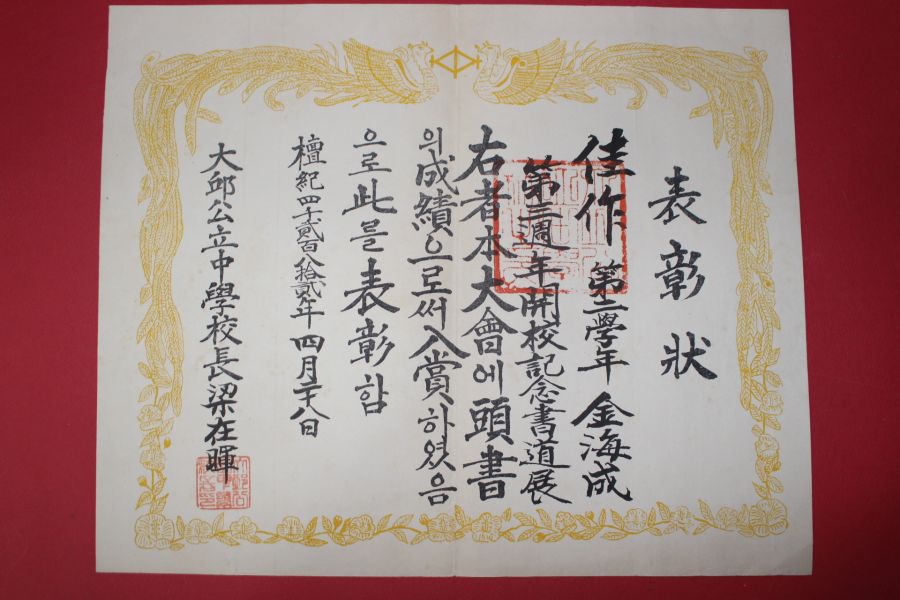 表彰狀
佳作 第二學年 金海成
第三週年開校記念書道展
右者本大會에頭書
의成績으로써入賞하였음
으로此를表彰함
檀紀四千貳百八拾貳年四月二十八日
大邱公立中學校長梁在暉